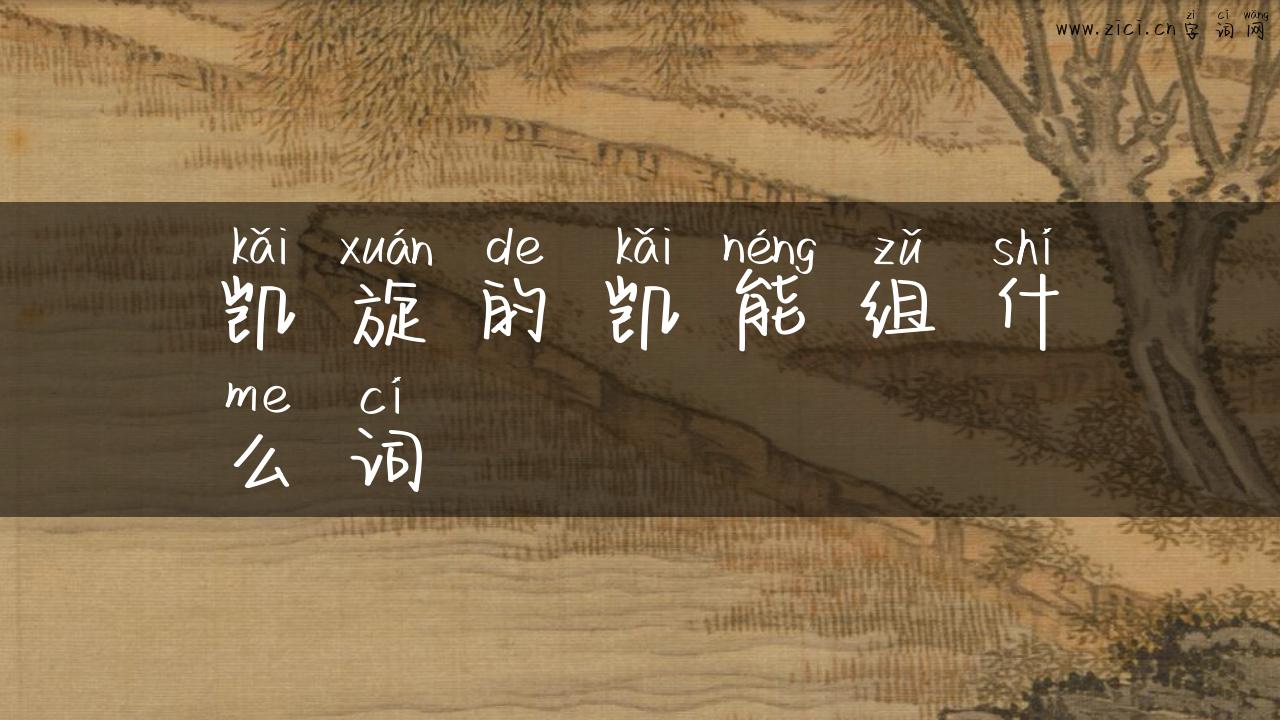 zì cí wǎng
www.zici.cn字词网
kǎi xuán de kǎi néng zǔ shí
凯旋的凯能组什
me cí
么词